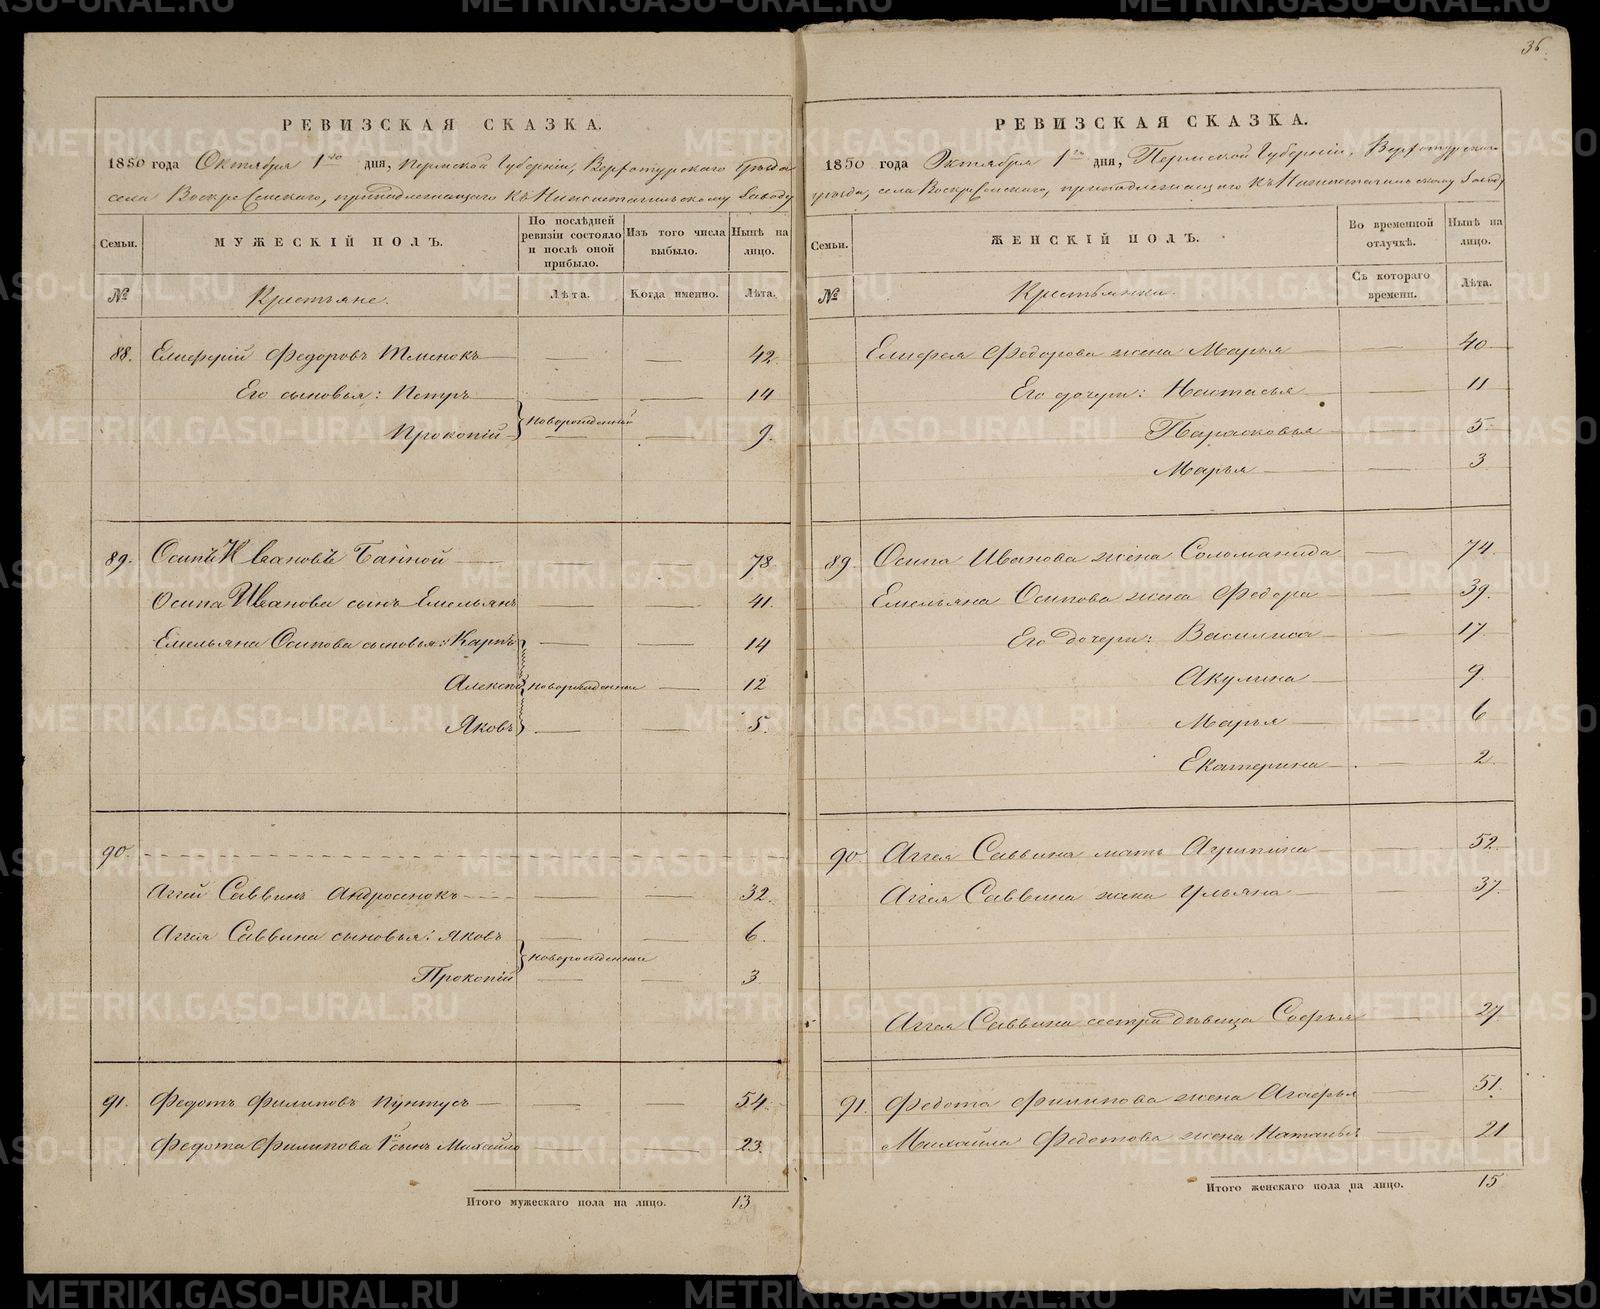 36.
РЕВИЗСКАЯ СКАЗКА.
1850 года Октября 1го дня, Пермской Губернiи, Верхотурскаго Уѣзда
села Воскресенскаго, принадлежащаго къ Нижнетагильскому Заводу
Семьи.
МУЖЕСКIЙ ПОЛЪ.
По послѣдней ревизiи состояло и послѣ оной прибыло.
Изъ того числа выбыло.
Нынѣ на лицо.
№
Крестьяне.
Лѣта.
Когда именно.
Лѣта.
88. Елиферiй Федоровъ 42.
Его сыновья: Петръ 14
Прокопiй новорожденный 9.
89. Осипъ Ивановъ Банной 78.
Осипа Иванова сынъ Емельянъ 41.
Емельяна Осипова сыновья: Карпъ 14
Алексѣй новорожденные 12
Яковъ 5.
90.
Аггей Саввинъ Андросенокъ 32.
Аггея Саввина сыновья: Яковъ 6.
новорожденные
Прокопiй 3
91. Федотъ Филиповъ Пунтусъ 54.
Федота Филипова сынъ Михайло 23.
Итого мужескаго пола на лицо. 13
РЕВИЗСКАЯ СКАЗКА.
1850 года Октября 1го дня, Пермской Губернiи, Верхотурскаго
уѣзда, села Воскресенскаго, принадлежащаго къ Нижнетагильскому Заводу
Семьи.
ЖЕНСКIЙ ПОЛЪ.
Во временной отлучкѣ.
Нынѣ на лицо.
№
Крестьянки.
Съ котораго времени.
Лѣта.
Елиферя Федорова жена Марья 40
Его дочери: Настасья 11
Парасковья 5.
Марья 3
89. Осипа Иванова жена Соломанида 74.
Емельяна Осипова жена Федора 39.
Его дочери: Василиса 17.
Акулина 9.
Марья 6
Екатерина 2.
90. Аггея Саввина мать Агрипина 52.
Аггея Саввина жена Ульяна 37.
Аггея Саввина сестра дѣвица Софья 27.
91. Федота Филипова жена Агафья 51.
Михайла Федотова жена Наталья 21
Итого женскаго пола на лицо. 15
METRIKI.GASO-URAL.RU